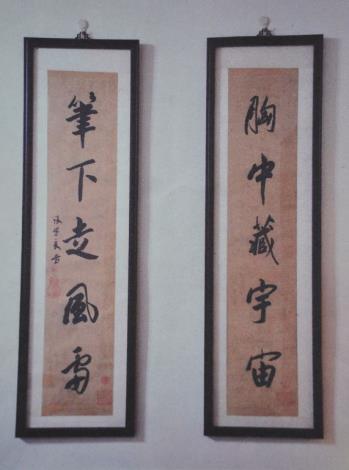 胸中藏宇宙
筆下走風雷